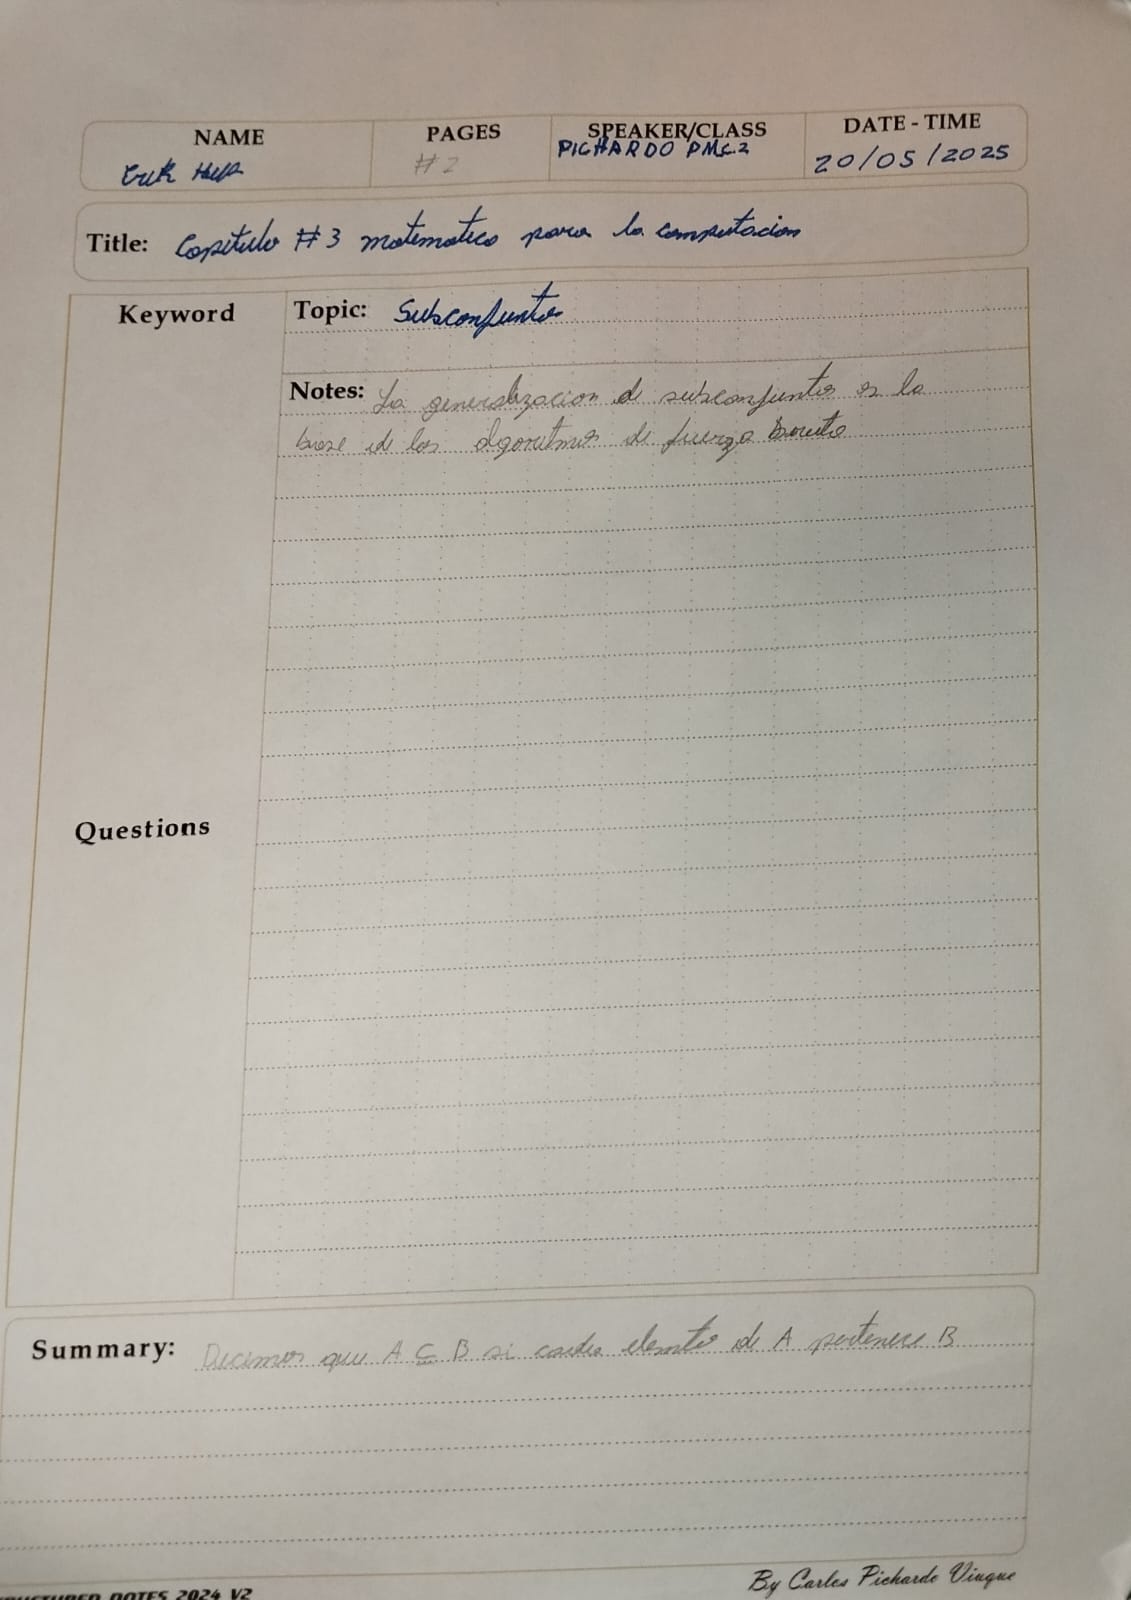 NAME
PAGES
SPEAKER/CLASS
DATE - TIME
Erik
#2
PICHARDO PMC.2
20/05/2025
Title: Capitulo #3 matematica para la computacion
Keyword
Topic: Subconjuntos
Notes: La generalizacion de subconjuntos es la
base de los algoritmos de fuerza bruta
Questions
Summary: Decimos que A ⊆ B si cada elemento de A pertenece B
NOTES 2024 V2
By Carlos Pichardo Viuque